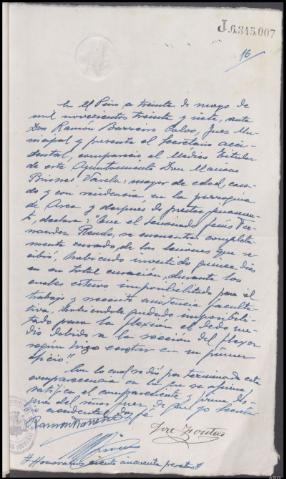 J.6.345.007
16
En El Pino a treinta de mayo de
mil novecientos treinta y siete, ante
Don Ramón Barreiro Calvo, Juez Mu-
nicipal y presente el Secretario acci-
dental, comparece el Médico titular
de este Ayuntamiento Don Manuel
mayor de edad, casa-
do y con residencia en la parroquia
de Arca y después de prestar juramen-
to, declara: Que el lesionado Jesús Fer-
nandez se encuentra completa-
mente curado de las lesiones que re-
cibió, habiendo invertido quince días
en su total curación, durante los
cuales estuvo imposibilitado para el
trabajo y necesitó asistencia faculta-
tiva, habiéndole quedado imposibili-
tado para la flexion el dedo me-
dio debido a la sección del flexor
según hizo constar en su primer
oficio.
Con lo cual se dió por terminada esta
comparecencia en la que se afirma
ratifica el compareciente y firma des-
pués del señor Juez de que yo Secretario
accidental doy fé
Ramon Barreiro